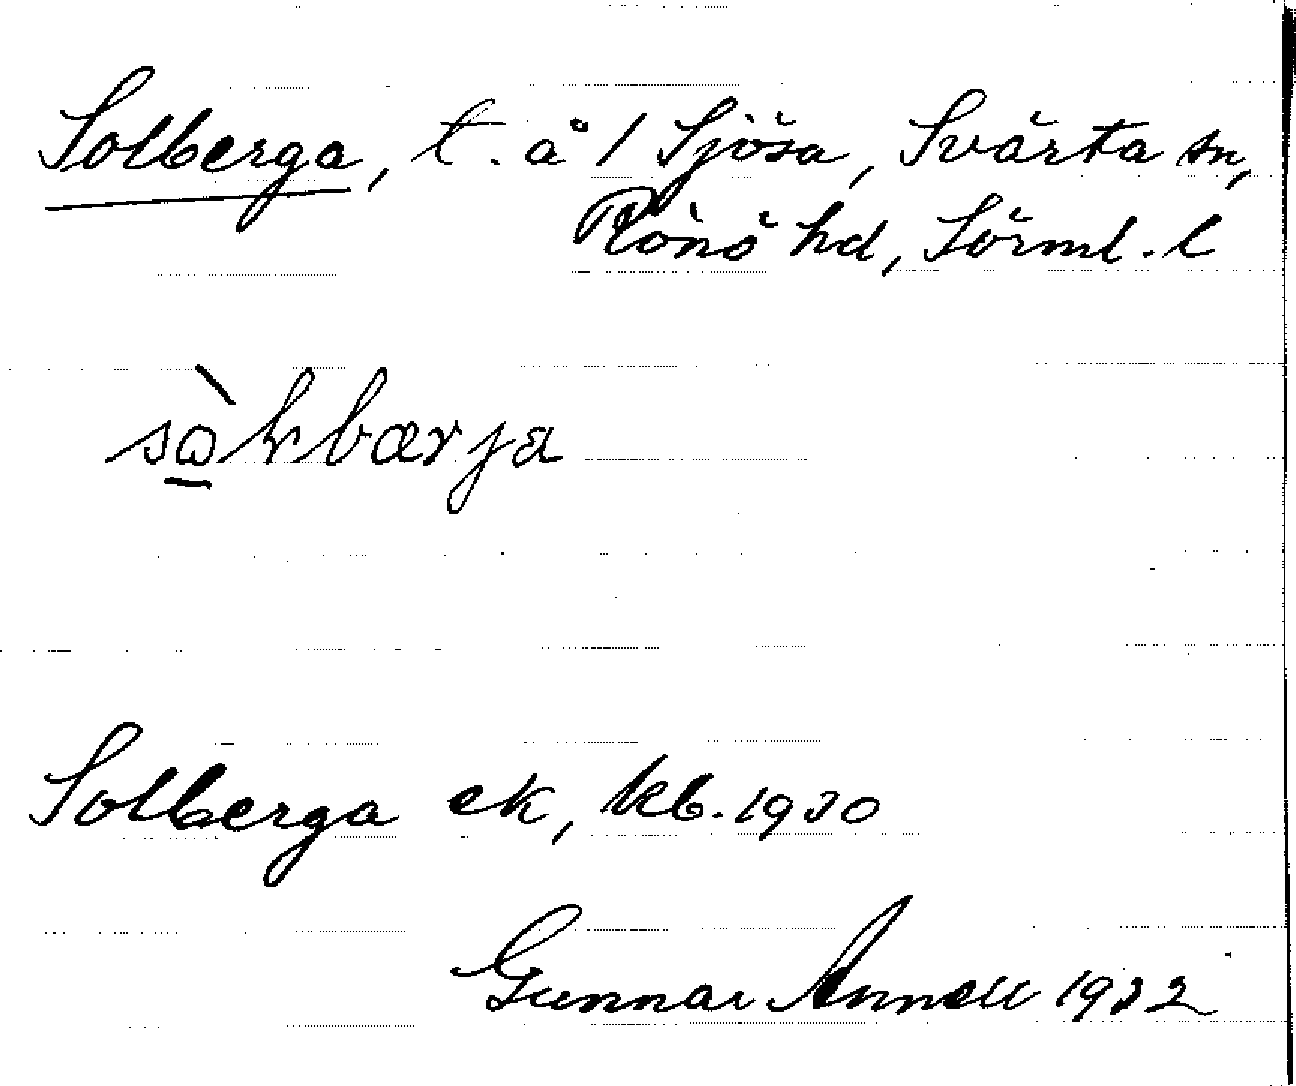 Solberga, t. å 1 Sjösa, Svärta sn,
Rönö hd, Sörml. l
Solberga ek, kb. 1930
Gunnar Annell 1932